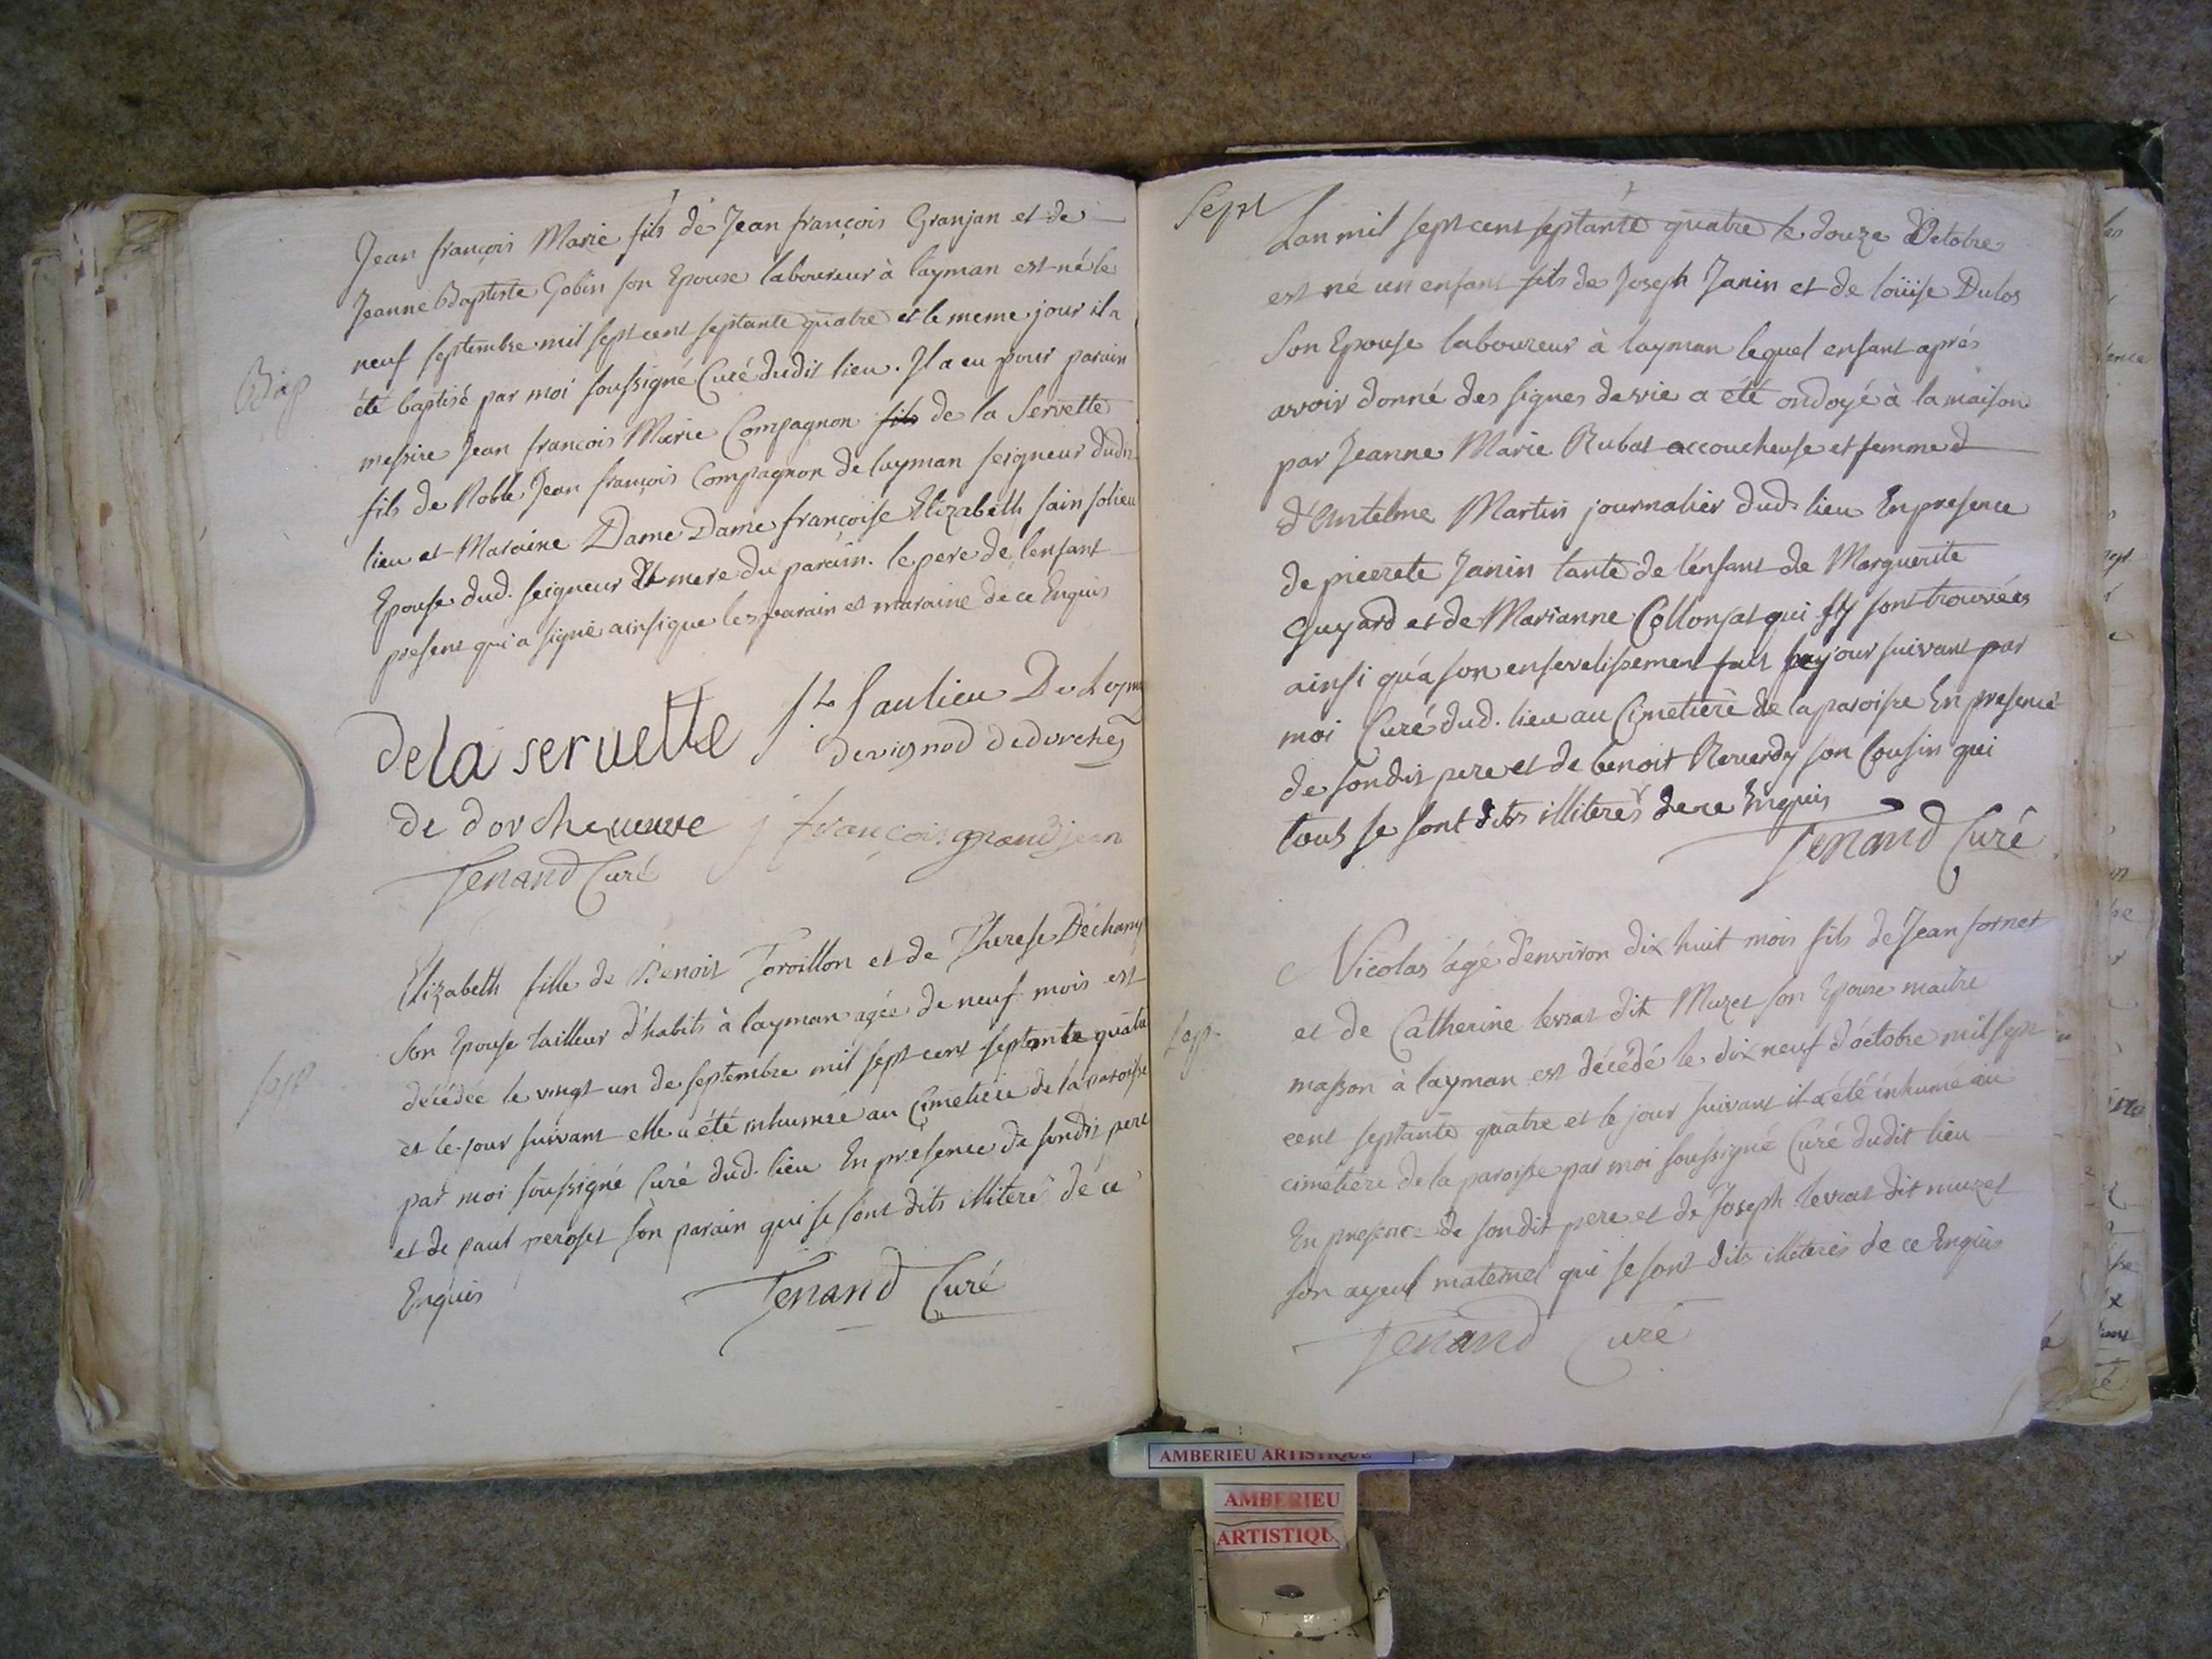 Bap
Jean françois Marie fils de Jean françois Granjan et de
Jeanne Baptiste Gobin son Epouse laboureur à layman est né le
neuf septembre mil sept cent septante quatre et le meme jour il a
été baptisé par moi soussigné Curé dudit lieu. Il a eu pour parain
messire Jean françois Marie Compagnon fils de la Servette
fils de Noble Jean françois Compagnon de layman seigneur dudit
lieu et Maraine Dame Dame françoise Elizabeth sain solieu
Epouse dud. seigneur et mere du parain. le pere de l'enfant
present qui a signé ainsi que les parain et maraine de ce Enquis
de la servette
St Saulieu De Leyma
devignod dedorches
de dorche
j françois grandjean
Tenand Curé
sept
Elizabeth fille de Benoit Toroillon et de Therese Déchamp
son Epouse tailleur d'habits à layman agée de neuf mois est
décédée le vingt un de septembre mil sept cent septante quatre
et le jour suivant elle a été inhumée au Cimetiere de la paroisse
par moi soussigné Curé dud. lieu En présence de sondit pere
et de paul peroset son parain qui se sont dits illiterés de ce
Enquis
Tenand Curé
Sept
Lan mil sept cent septante quatre le douze Octobre
est né un enfant fils de Joseph Janin et de loüise Dulos
son Epouse laboureur à layman lequel enfant aprés
avoir donné des signes de vie a été ondoyé à la maison
par Jeanne Marie Rubat accoucheuse et femme d
d'Antelme Martin journalier dud. lieu En presence
de pierrete Janin tante de l'enfant de Marguerite
Guyard et de Marianne Collonjat qui s'y sont trouvées
ainsi qu'a son ensevelissement fait jour suivant par
moi Curé dud. lieu au Cimetiere de la paroisse En presence
de sondit pere et de benoit Reverdy son Cousin qui
tous se sont dits illiterés de ce Enquis
Tenand Curé
Sep.
Nicolas agé d'environ dix huit mois fils de Jean fornet
et de Catherine levrat dit Muzet son Epouse maitre
masson à layman est décédé le dix neuf d'octobre mil sept
cent septante quatre et le jour suivant il a été inhumé au
cimetiere de la paroisse par moi soussigné Curé dudit lieu
En presence de sondit pere et de Joseph levrat dit muzet
son ayeul maternel qui se sont dits illiterés de ce Enquis
Tenand Curé
AMBERIEU ARTISTIQUE
AMBERIEU
ARTISTIQU